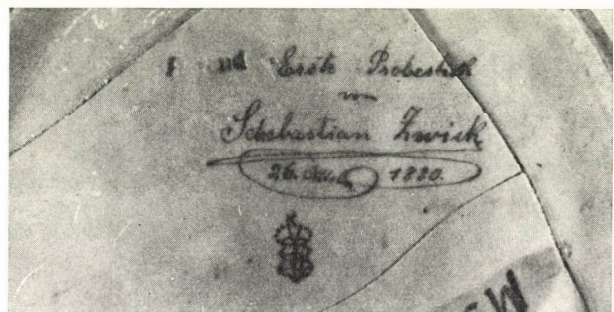 Erste Probestück
von
Sebastian Zwick
26. 1880.